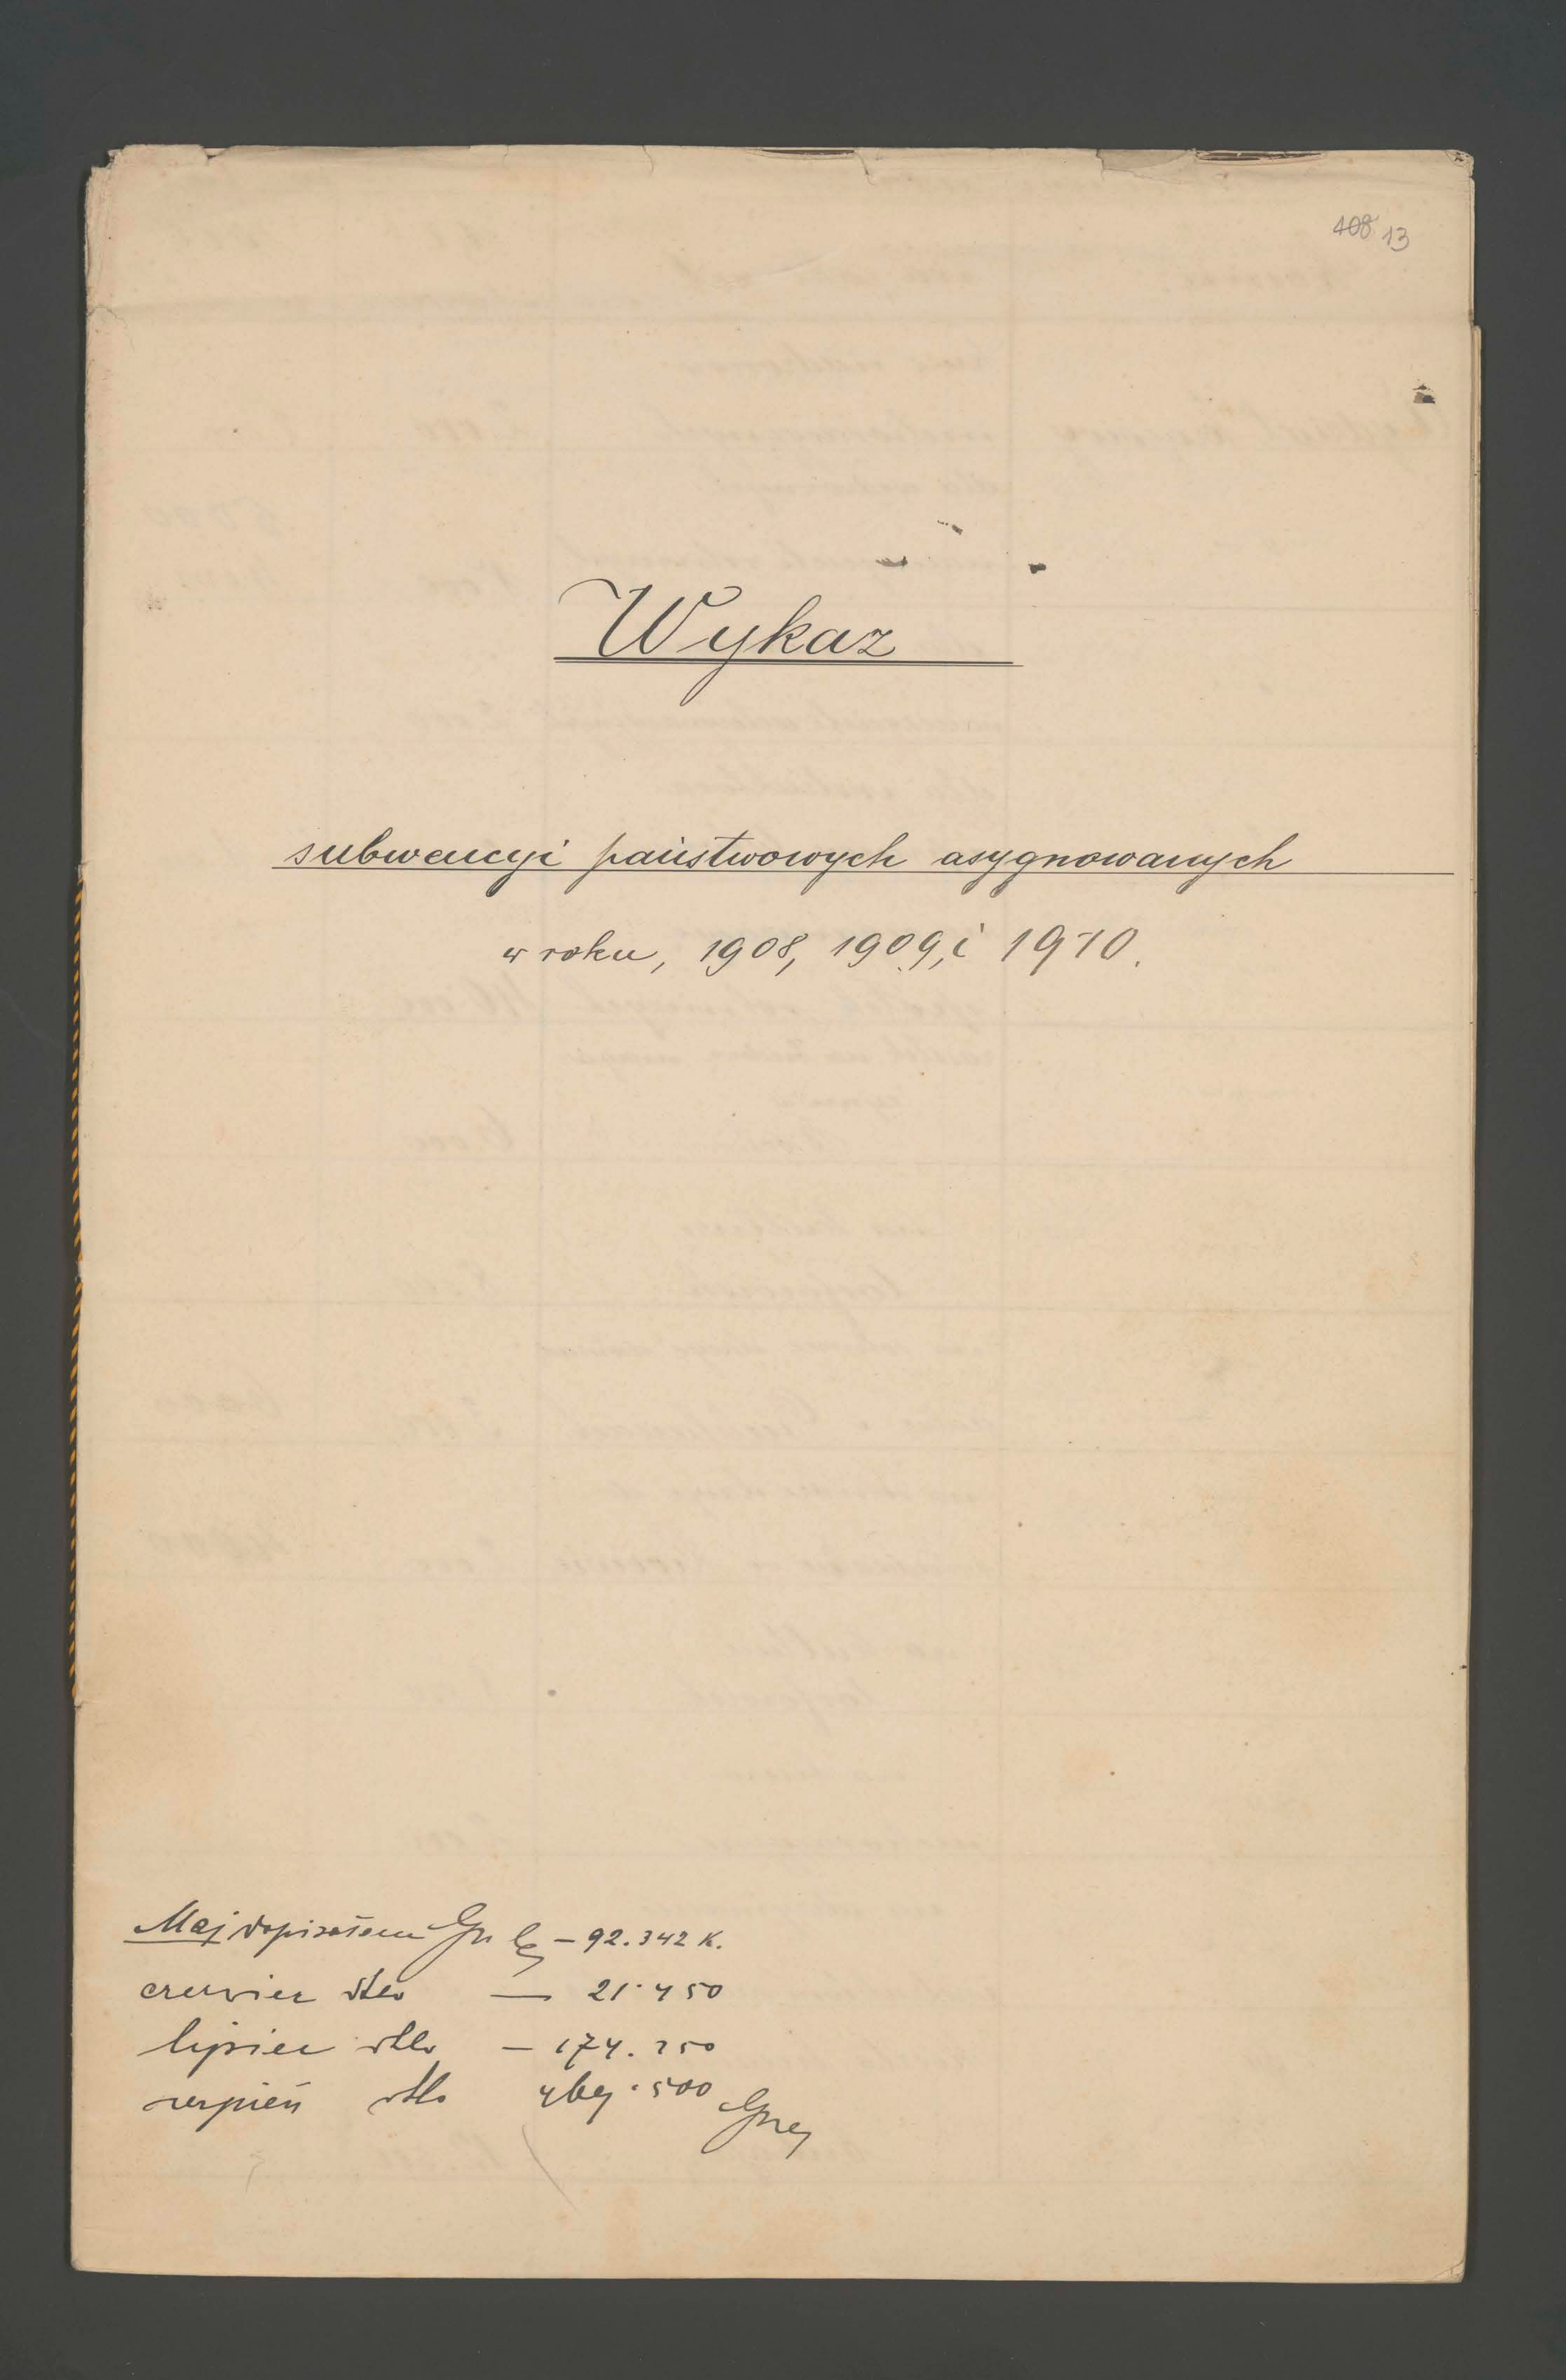 408 13
Wykaz
subwencyi państwowych asygnowanych
w roku, 1908, 1909, i 1910.
Maj dopisałem — 92.342 K.
czerwiec dto — 21.450
lipiec dto — 174.250
sierpień dto 500